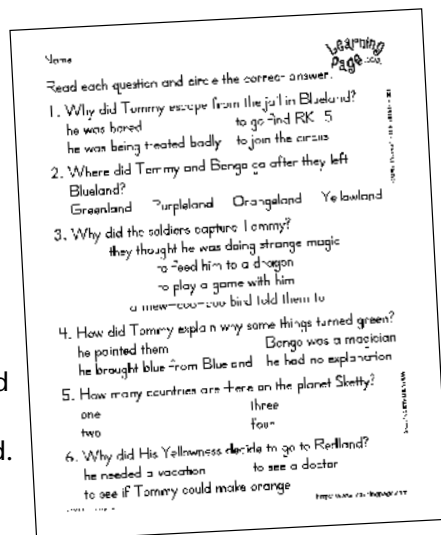 Name
Learning
Page.com
Read each question and circle the correct answer.
1. Why did Tommy escape from the jail in Blueland?
he was bored to go find RK 5
he was being treated badly to join the circus
2. Where did Tommy and Bongo go after they left
Blueland?
Greenland Purpleland Orangeland Yellowland
3. Why did the soldiers capture Tommy?
they thought he was doing strange magic
to feed him to a dragon
to play a game with him
bird told them to
4. How did Tommy explain why some things turned green?
he painted them Bongo was a magician
he brought blue from Blueland he had no explanation
5. How many countries are there on the planet Sketty?
one three
two four
6. Why did His Yellowness decide to go to Redland?
he needed a vacation to see a doctor
to see if Tommy could make orange
d
d.